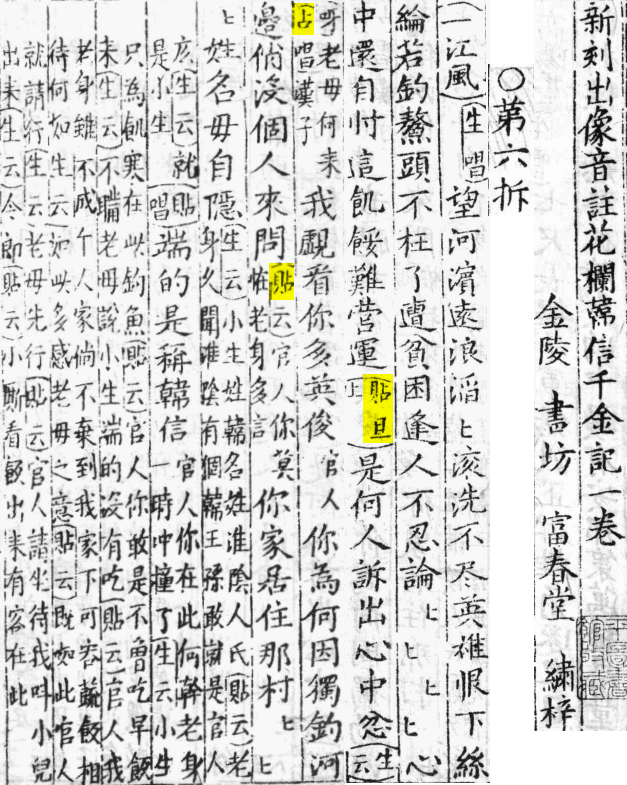 新刻出像音註花欄韓信千金記一卷
金陵 書坊 富春堂 繡梓
○第六折
(一江風)(生唱)望河濵遠浪滔ヒ滚洗不尽英雄恨下絲
綸若釣鰲頭不枉了遭貧困逢人不忍論ヒヒヒヒ心
中還自忖這飢餒難营運(貼旦上)是何人訴出心中忿(生云)
呼老母何来(占唱)漢子我覷着你多英俊官人你為何因獨釣河
邉俏没個人來問(貼云)官人你莫恠老身多言你家居住那村ヒヒ
ヒ姓名毋自隱(生云)小生姓韓名姓淮陰人氏(貼云)老身久聞淮陰有個韓王孫敢就是官人
広(生云)就是小生(貼唱)端的是稱韓信一時冲撞了官人你在此何幹老身(生云)小生
只為飢寒在此釣魚(貼云)官人你敢是不曽吃早飯
未(生云)不瞞老母說小生端的没有吃(貼云)官人我
老身雖不成个人家倘不棄到我家下可容蔬飯相
待何如(生云)多感老母之意(貼云)既如此官人
就請行(生云)老母先行(貼云)官人請坐待我叫小兒
出来(生云)今郎(貼云)小厮看飯出来有客在此